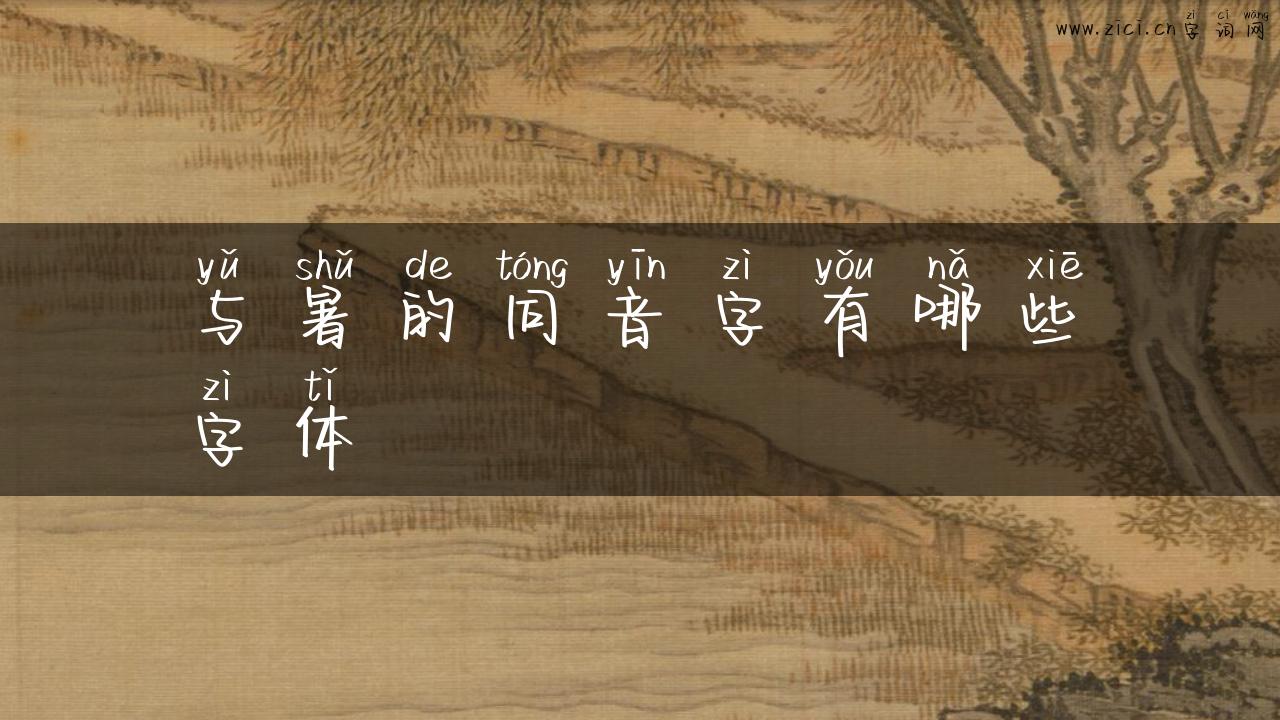 zì cí wǎng
www.zici.cn字词网
yǔ shǔ de tóng yīn zì yǒu nǎ xiē
与暑的同音字有哪些
zì tǐ
字体